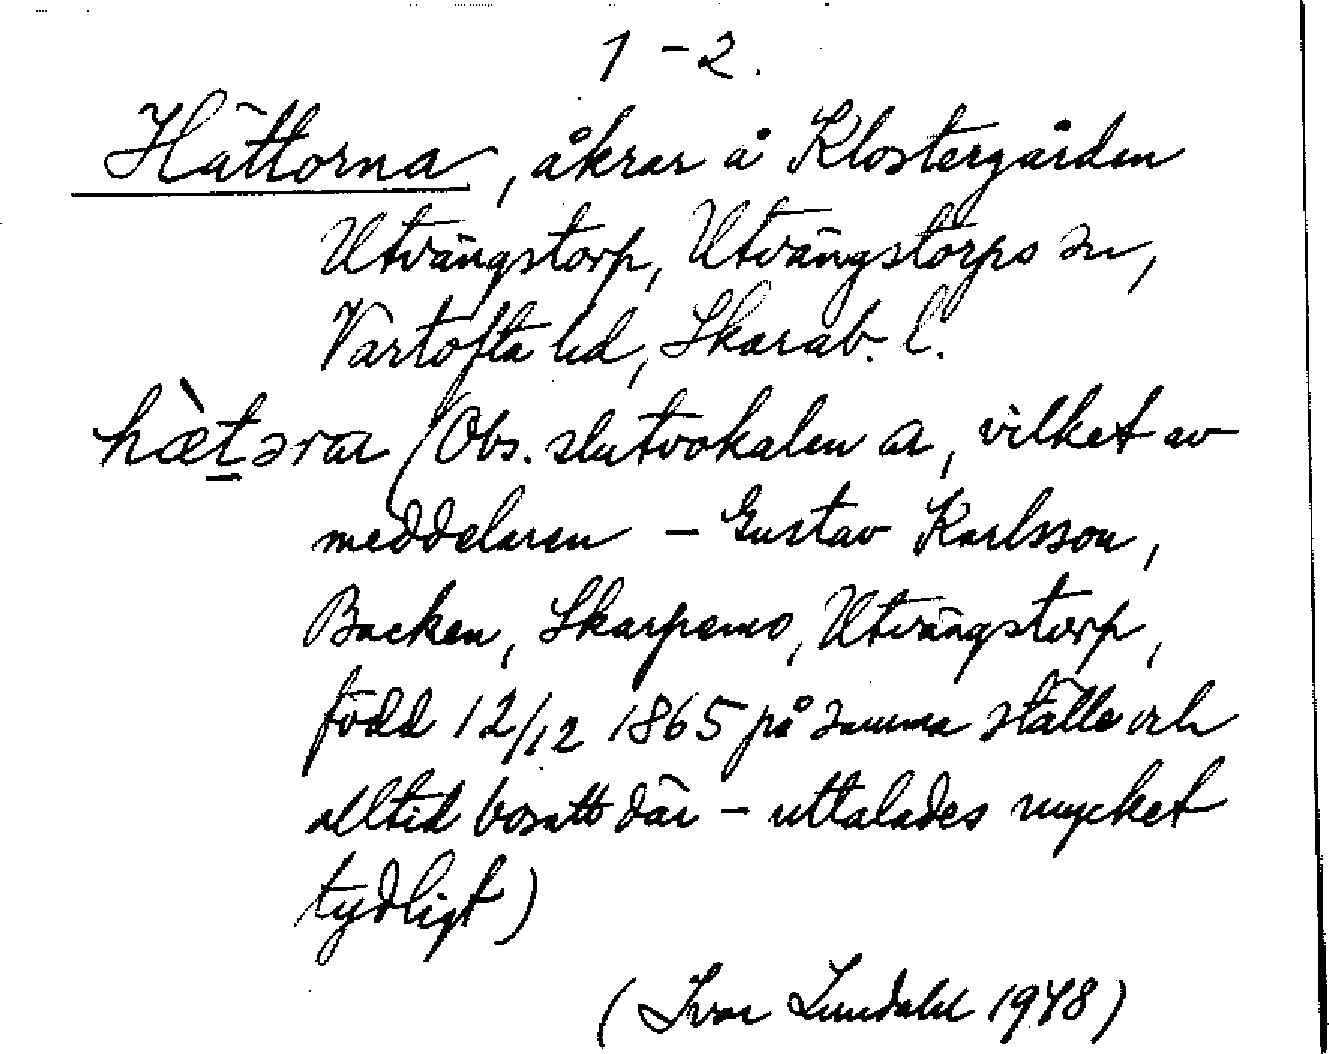 1 - 2.
Hättorna, åkrar å Klostergården
Utvängstorp, Utvängstorps sn,
Vartofta hd, Skarab. l.
hæ̀t̲ərar (Obs. slutvokalen a, vilket av
meddelaren - Gustav Karlsson,
Backen, Skarpemo, Utvängstorp,
född 12/12 1865 på samma ställe och
alltid bosatt där - uttalades mycket
tydligt)
(Ivar Lundahl 1948)